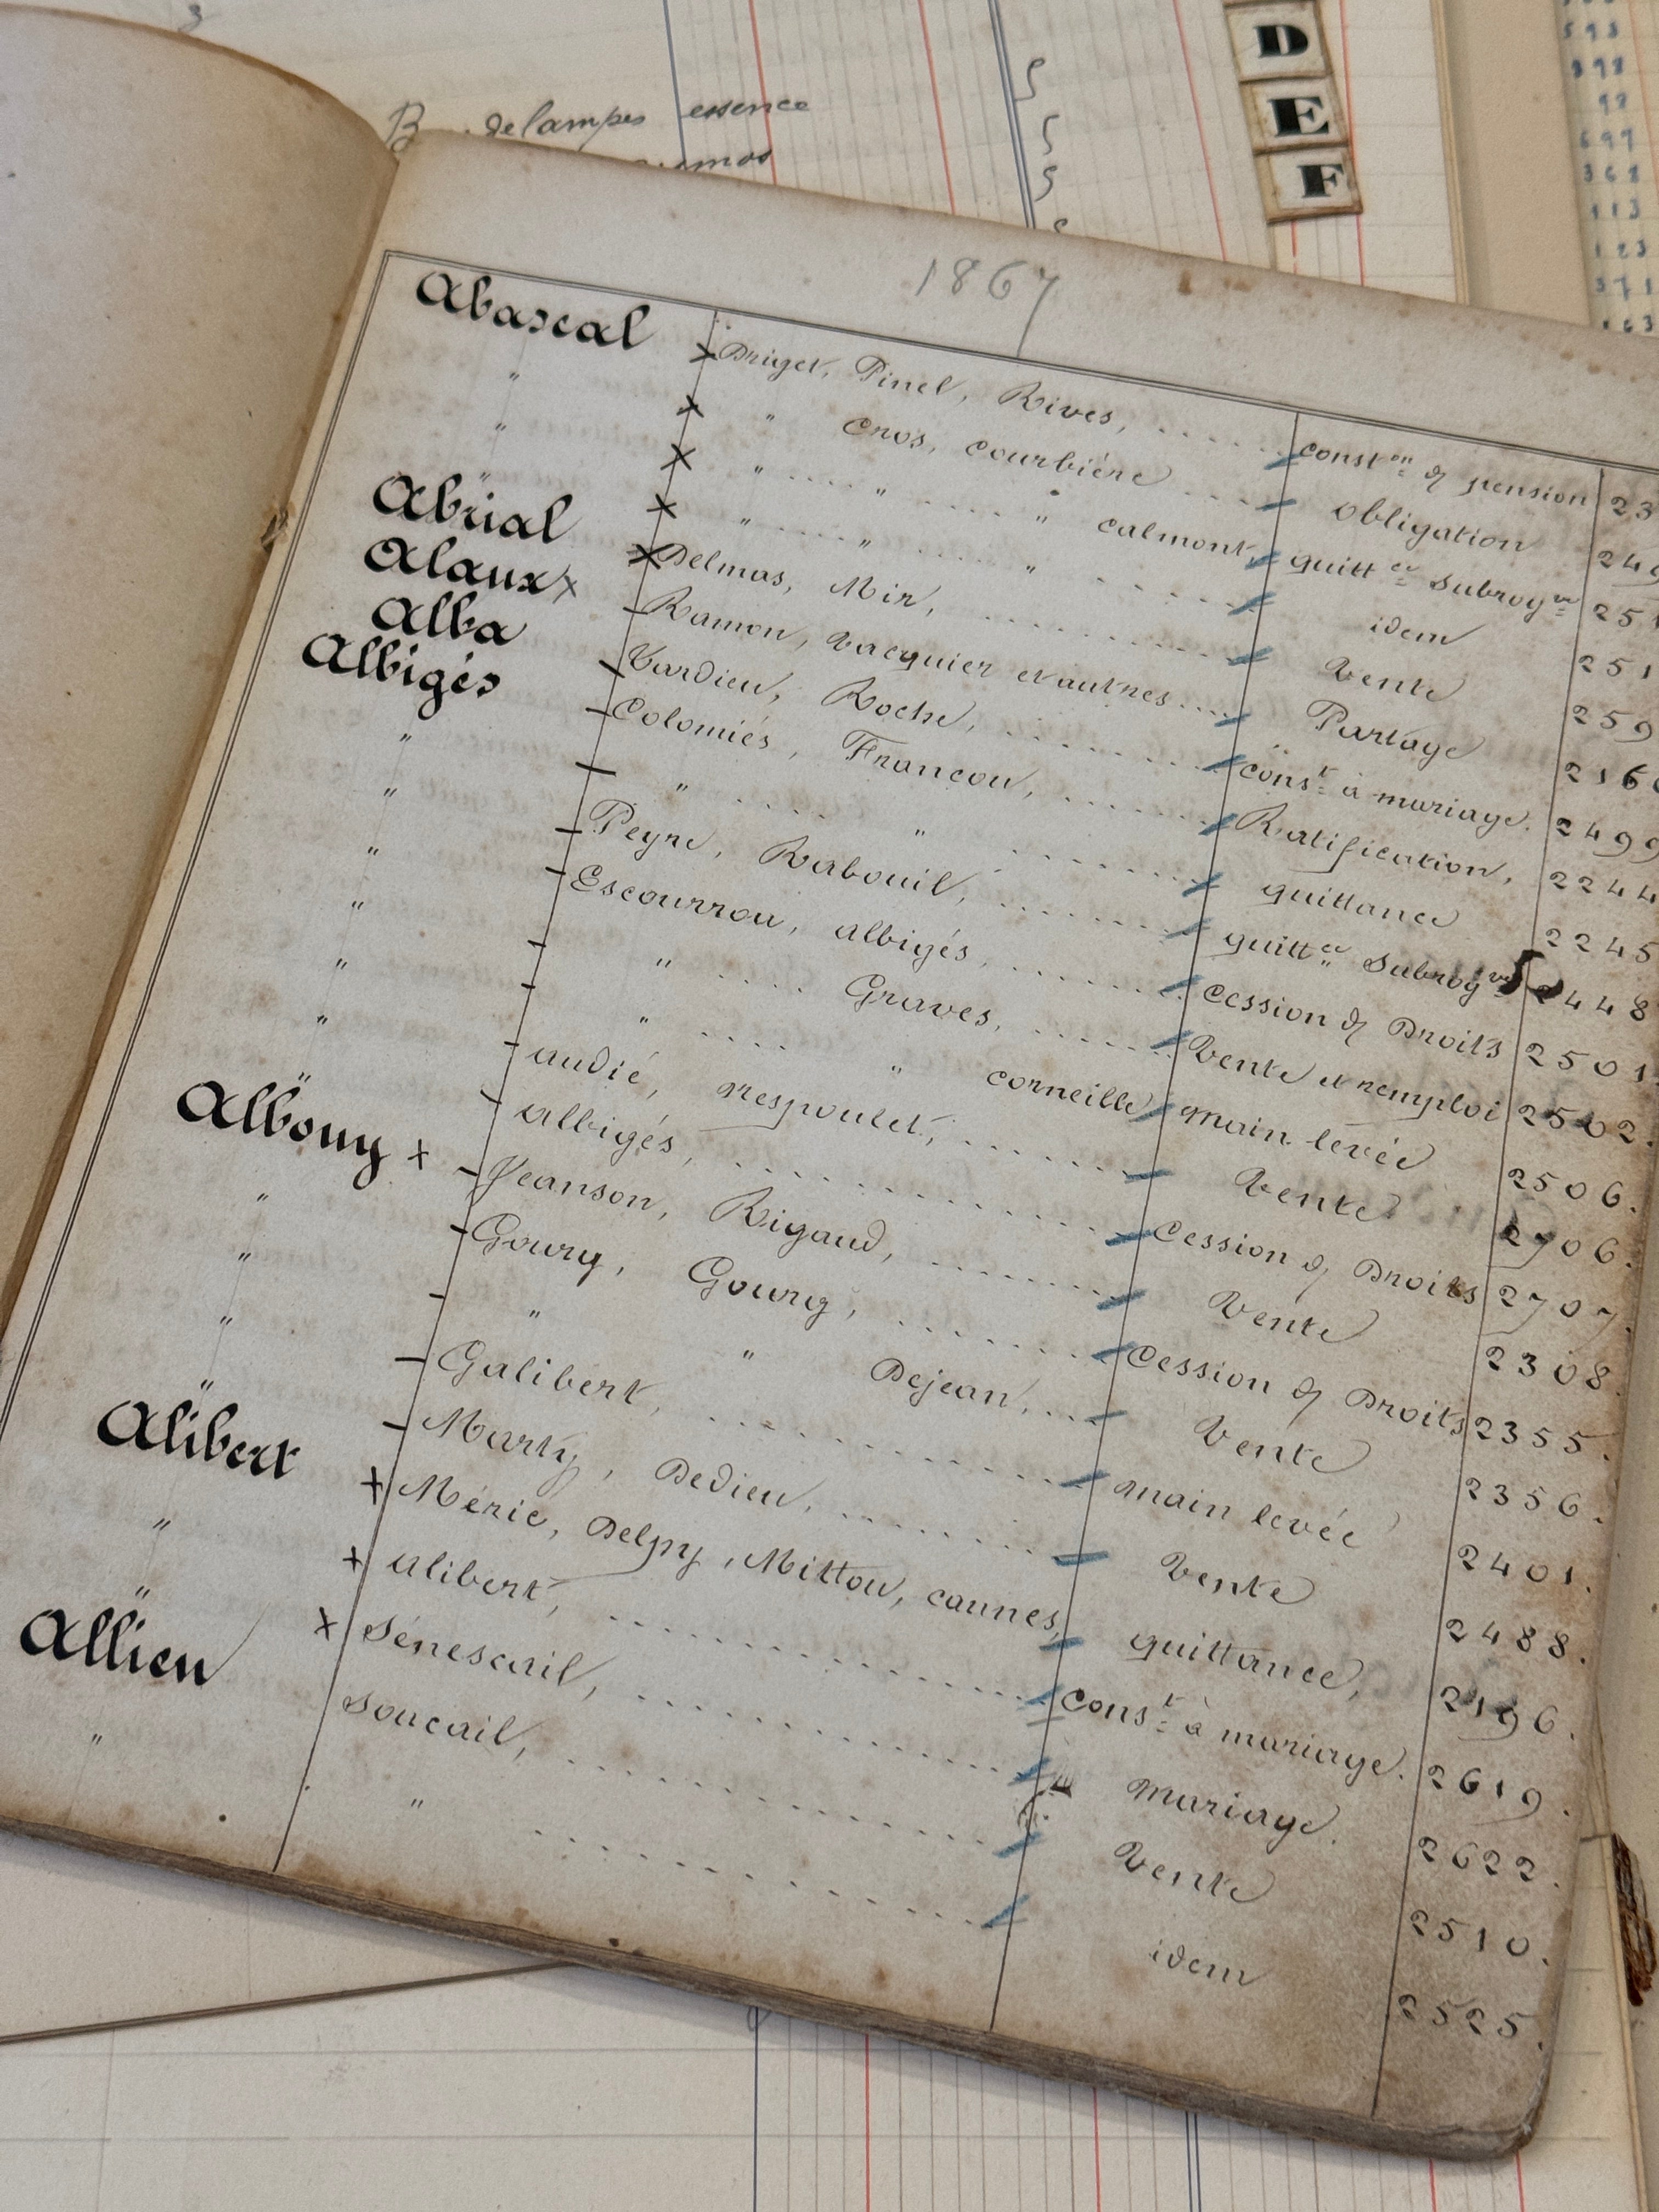 B delampes essence
D
E
F
1867
Abascal Driget, Pinel, Rives, conston de pension 23
" " Cros, Courbière obligation 24
" " " " Calmont, quittce Subrogve 25
" " " " idem 251
Abrial Delmas, Mir, Vente 259
Alaux x Ramon, Vacquier et autres Partage 216
Alba Tardieu, Roche, Const à mariage. 2499
Albigés Colomiés, Francou, Ratification, 2244
" " " quittance 2245
" Peyre, Rabouil, quittce Subrogve 2448
" Escourrou, albigés, Cession de Droits 2501.
" " Graves, Vente et remploi 2502.
" " " Corneille main levée 2506.
" audié, Respoulet, Vente 2706.
" albigés, Cession de Droits 2707.
Albouy x Jeanson, Rigaud, Vente 2308.
" Goury, Goury, Cession de Droits 2355.
" " " Dejean, Vente 2356.
" Galibert, main levée 2401.
" Marty, Dedieu, Vente 2488.
Alibert x Méric, Delpy, Mittou, Caunes, quittance, 2196.
" x alibert, Const à mariage. 2619.
" x Sénescail, Mariage. 2622.
Allien Soucail, Vente 2510.
" " idem 2525.